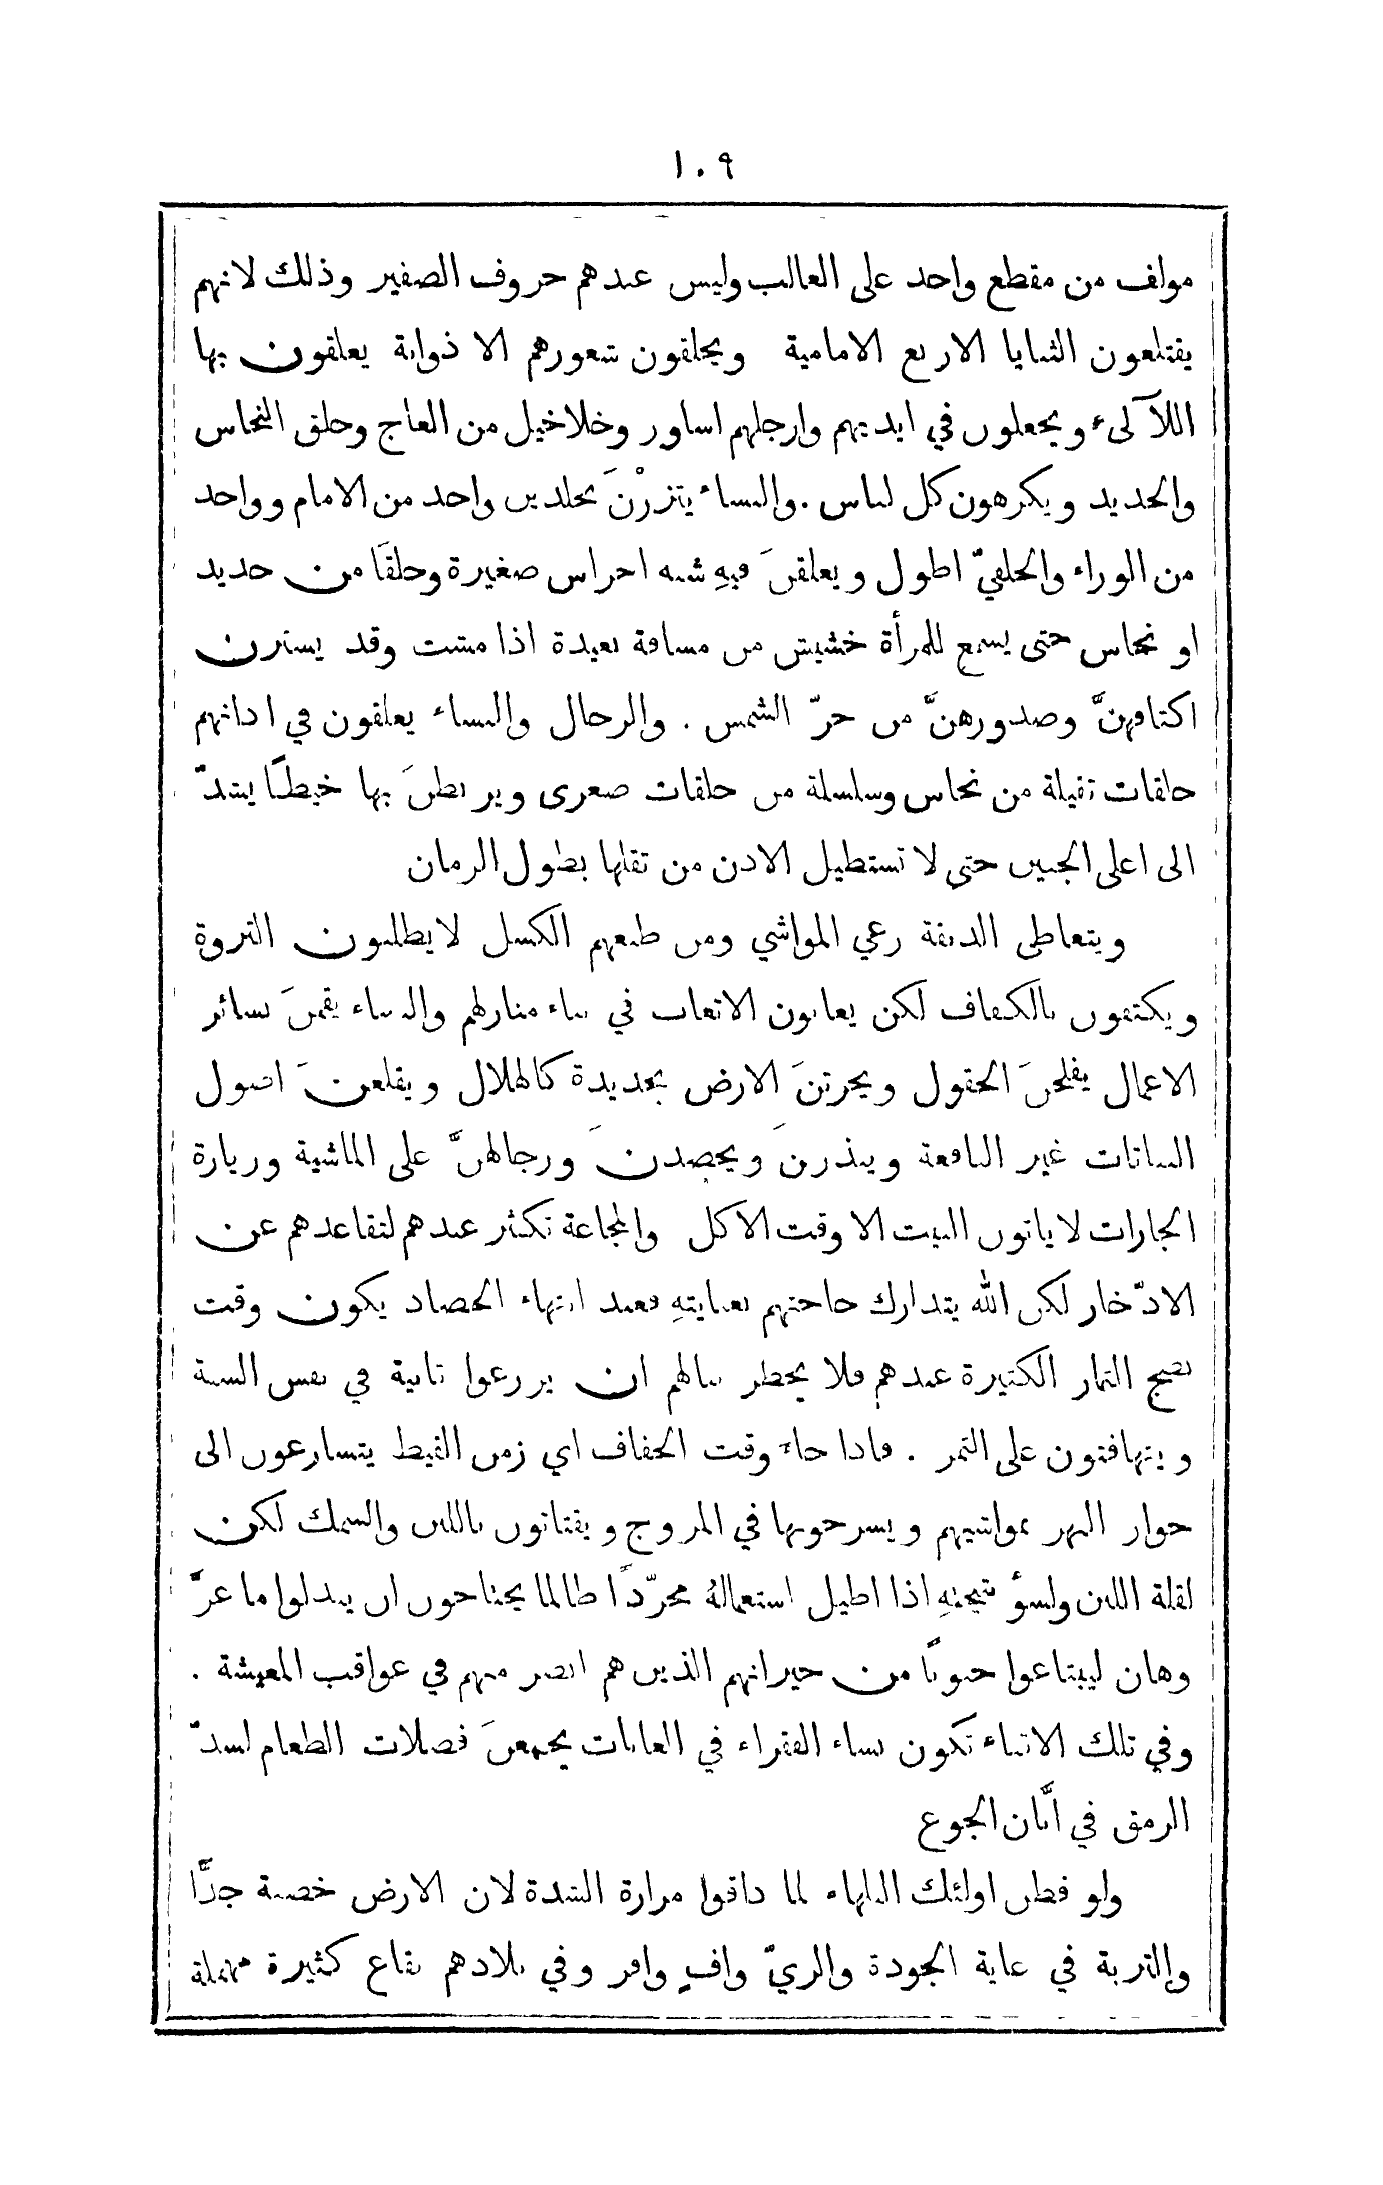 ١٠٩
مولف من مقطع واحد على الغالب وليس عندهم حروف الصفير وذلك لانهم
يقتلعون الثنايا الاربع الامامية ويحلقون شعورهم الا ذوابة يعلقون بها
اللآلىء ويجعلون في ايديهم وارجلهم اساور وخلاخيل من العاج وحلق النحاس
والحديد ويكرهون كل لباس . والنساء يتزرْنَ بجلدين واحد من الامام وواحد
من الوراء والخلفيّ اطول ويعلقنَ فيهِ شبه اجراس صغيرة وحلقًا من حديد
او نحاس حتى يسمع للمرأة خشيش من مسافة بعيدة اذا مشت وقد يسترن
اكتافهنَّ وصدورهنَّ من حرّ الشمس . والرجال والنساء يعلقون في اذانهم
حلقات ثقيلة من نحاس وسلسلة من حلقات صغرى ويربطنَ بها خيطًا يمتدّ
الى اعلى الجبين حتى لا تستطيل الاذن من ثقلها بطول الزمان
ويتعاطى الدنقة رعي المواشي ومن طبعهم الكسل لا يطلبون الثروة
ويكتفون بالكفاف لكن يعانون الاتعاب في بناء منازلهم والنساء يقمنَ بسائر
الاعمال يفلحنَ الحقول ويحرثنَ الارض بحديدة كالهلال ويقلعنَ اصول
النباتات غير النافعة ويبذرنَ ويحصدنَ ورجالهنَّ على الماشية وزيارة
الجارات لا ياتون البيت الا وقت الاكل والمجاعة تكثر عندهم لتقاعدهم عن
الادّخار لكن الله يتدارك حاجتهم بعنايتهِ فعند انتهاء الحصاد يكون وقت
نضج الثمار الكثيرة عندهم فلا يخطر ببالهم ان يزرعوا ثانية في نفس السنة
ويتهافتون على الثمر . فاذا جاء وقت الجفاف اي زمن القيظ يتسارعون الى
جوار النهر بمواشيهم ويسرحونها في المروج ويقتاتون باللبن والسمك لكن
لقلة اللبن ولسؤ نتيجتهِ اذا اطيل استعمالهُ مجرّدًا طالما يحتاجون ان يبدلوا ما عزَّ
وهان ليبتاعوا حبوبًا من جيرانهم الذين هم ابصر منهم في عواقب المعيشة .
وفي تلك الاثناء تكون نساء الفقراء في الغابات يجمعنَ فضلات الطعام لسدّ
الرمق في ابَّان الجوع
ولو فطن اولئك البلهاء لما ذاقوا مرارة الشدة لان الارض خصبة جدًّا
والتربة في غاية الجودة والريّ وافٍ وافر وفي بلادهم بقاع كثيرة مهملة